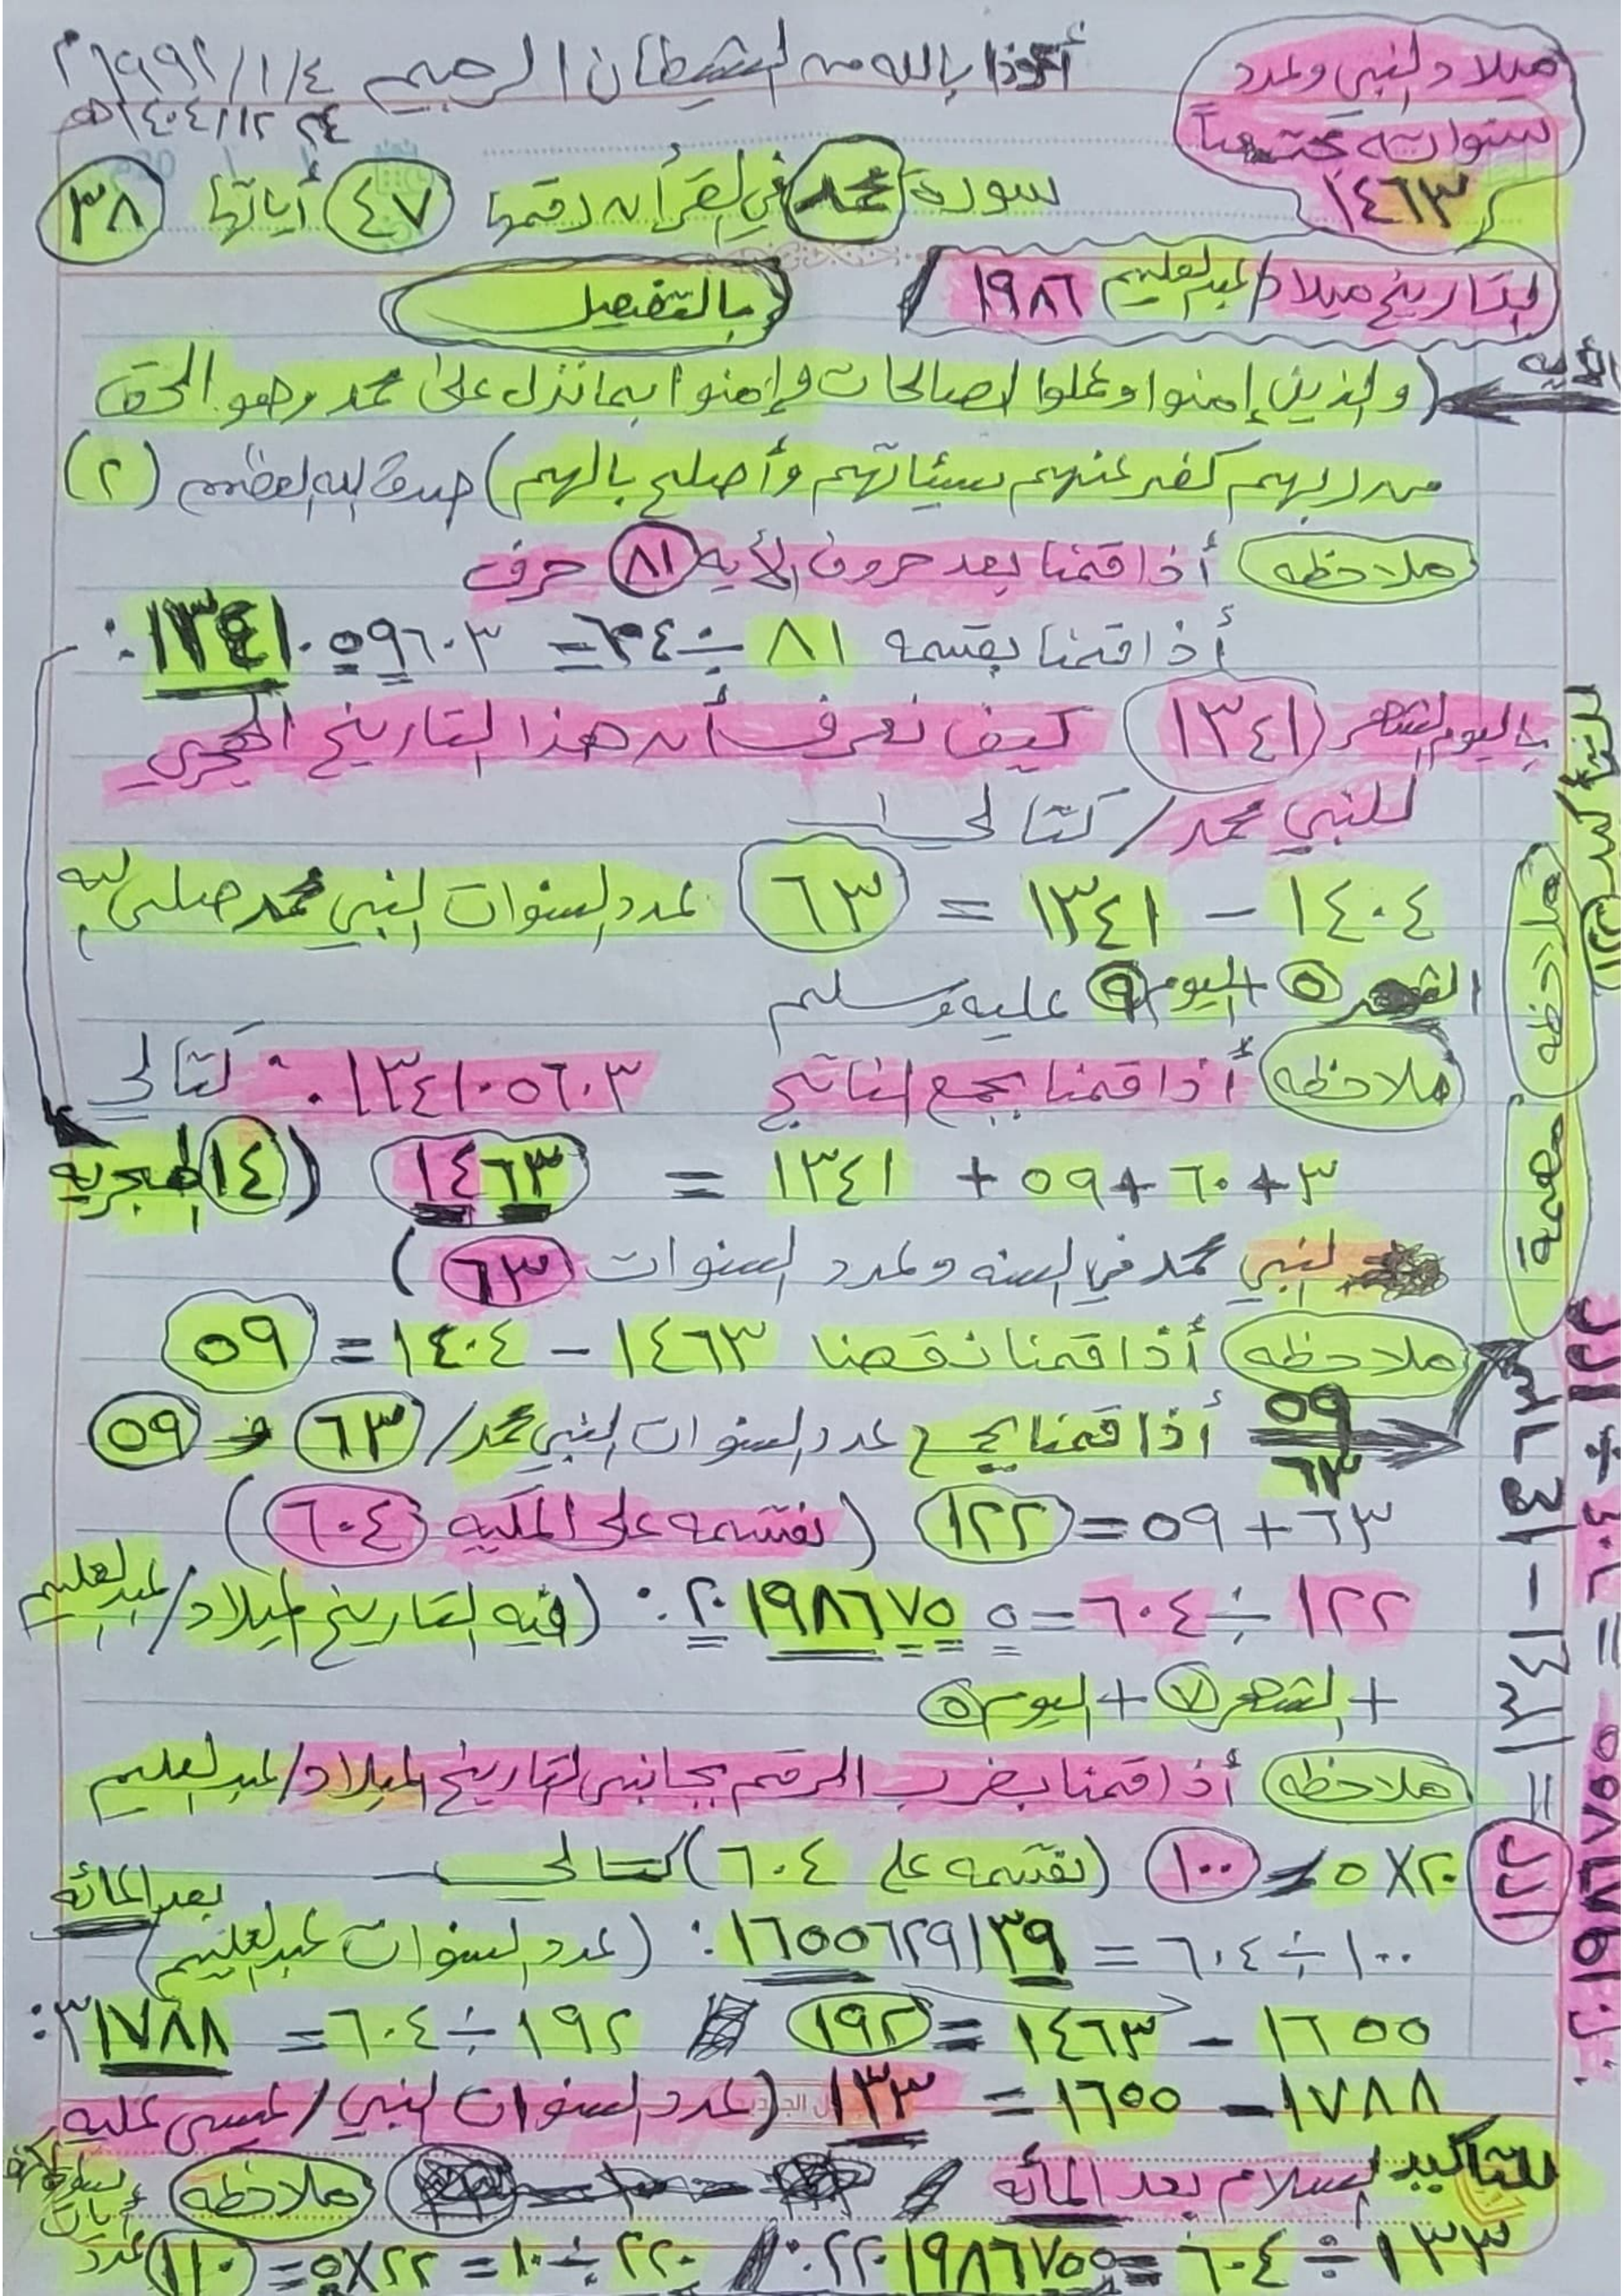 ميلاد النبي وعدد
سنواته مجتمعاً
١٤٦٣
أعوذ بالله من الشيطان الرجيم ١/٤/
سورة محمد في القرأن رقمها ٤٧ أياتها ٣٨
التاريخ ميلاد/عبدالعليم ١٩٨٦ بالتفصيل
الأيه
(والذين إمنوا وعملوا الصالحات وإمنوا بما نزل على محمد وهو الحق
من ربهم كفر عنهم سيئاتهم وأصلح بالهم) صدق الله العظيم (٢)
ملاحظه أذا قمنا بعد حروف الأيه ٨١ حرف
أذا قمنا بقسمه ٨١ ÷ ٦٠٤ = ٠.١٣٤١٠٥٩٦٠٣
باليوم الشهر (١٣٤١) كيف نعرف أن هذا التاريخ الهجري
للنبي محمد/ كتالي
١٤٠٤ – ١٣٤١ = ٦٣ عدد السنوات النبي محمد صلى الله
الشهر ٥ + اليوم ٩ عليه وسلم
ملاحظه أذا قمنا بجمع الناتج ٠.١٣٤١٠٥٦٠٣ كتالي
٣ + ٦٠ + ٥٩ + ١٣٤١ = ١٤٦٣ (١٤ الهجريه
النبي محمد في السنه وعدد السنوات ٦٣)
ملاحظه أذا قمنا نقصنا ١٤٦٣ – ١٤٠٤ = ٥٩
٥٩
٦٣
أذا قمنا بجمع عدد السنوات النبي محمد/ ٦٣ و ٥٩
٦٣ + ٥٩ = ١٢٢ (نقسمه على المكيه ٦٠٤)
١٢٢ ÷ ٦٠٤ = ٠.٢٠١٩٨٦٧٥٥ (فيه التاريخ لميلاد/عبدالعليم
+ الشهر ٧ + اليوم ٥
ملاحظه أذا قمنا بضرب الرقم بجانب التاريخ الميلاد/عبدالعليم
٢٠ X ٥ = ١٠٠ (نقسمه على ٦٠٤) كتالي
بعد المائه
١٠٠ ÷ ٦٠٤ = ٠.١٦٥٥٦٢٩١٣٩ (عدد السنوات عبدالعليم)
١٦٥٥ – ١٤٦٣ = ١٩٢ / ١٩٢ ÷ ٦٠٤ = ٠.٣١٧٨٨
١٧٨٨ – ١٦٥٥ = ١٣٣ (عدد السنوات النبي/عيسى عليه
السلام بعد المائه / ملاحظه
للتأكيد
١٣٣ ÷ ٦٠٤ = ٠.٢٢٠١٩٨٦٧٥٥ / ٢٢٠ ÷ ١٠ = ٢٢ X ٥ = ١١٠ عدد
ملاحظه
مهمة
١٤٦٣ – ١٣٤١ = ١٢٢
١٢٢ ÷ ٦٠٤ =